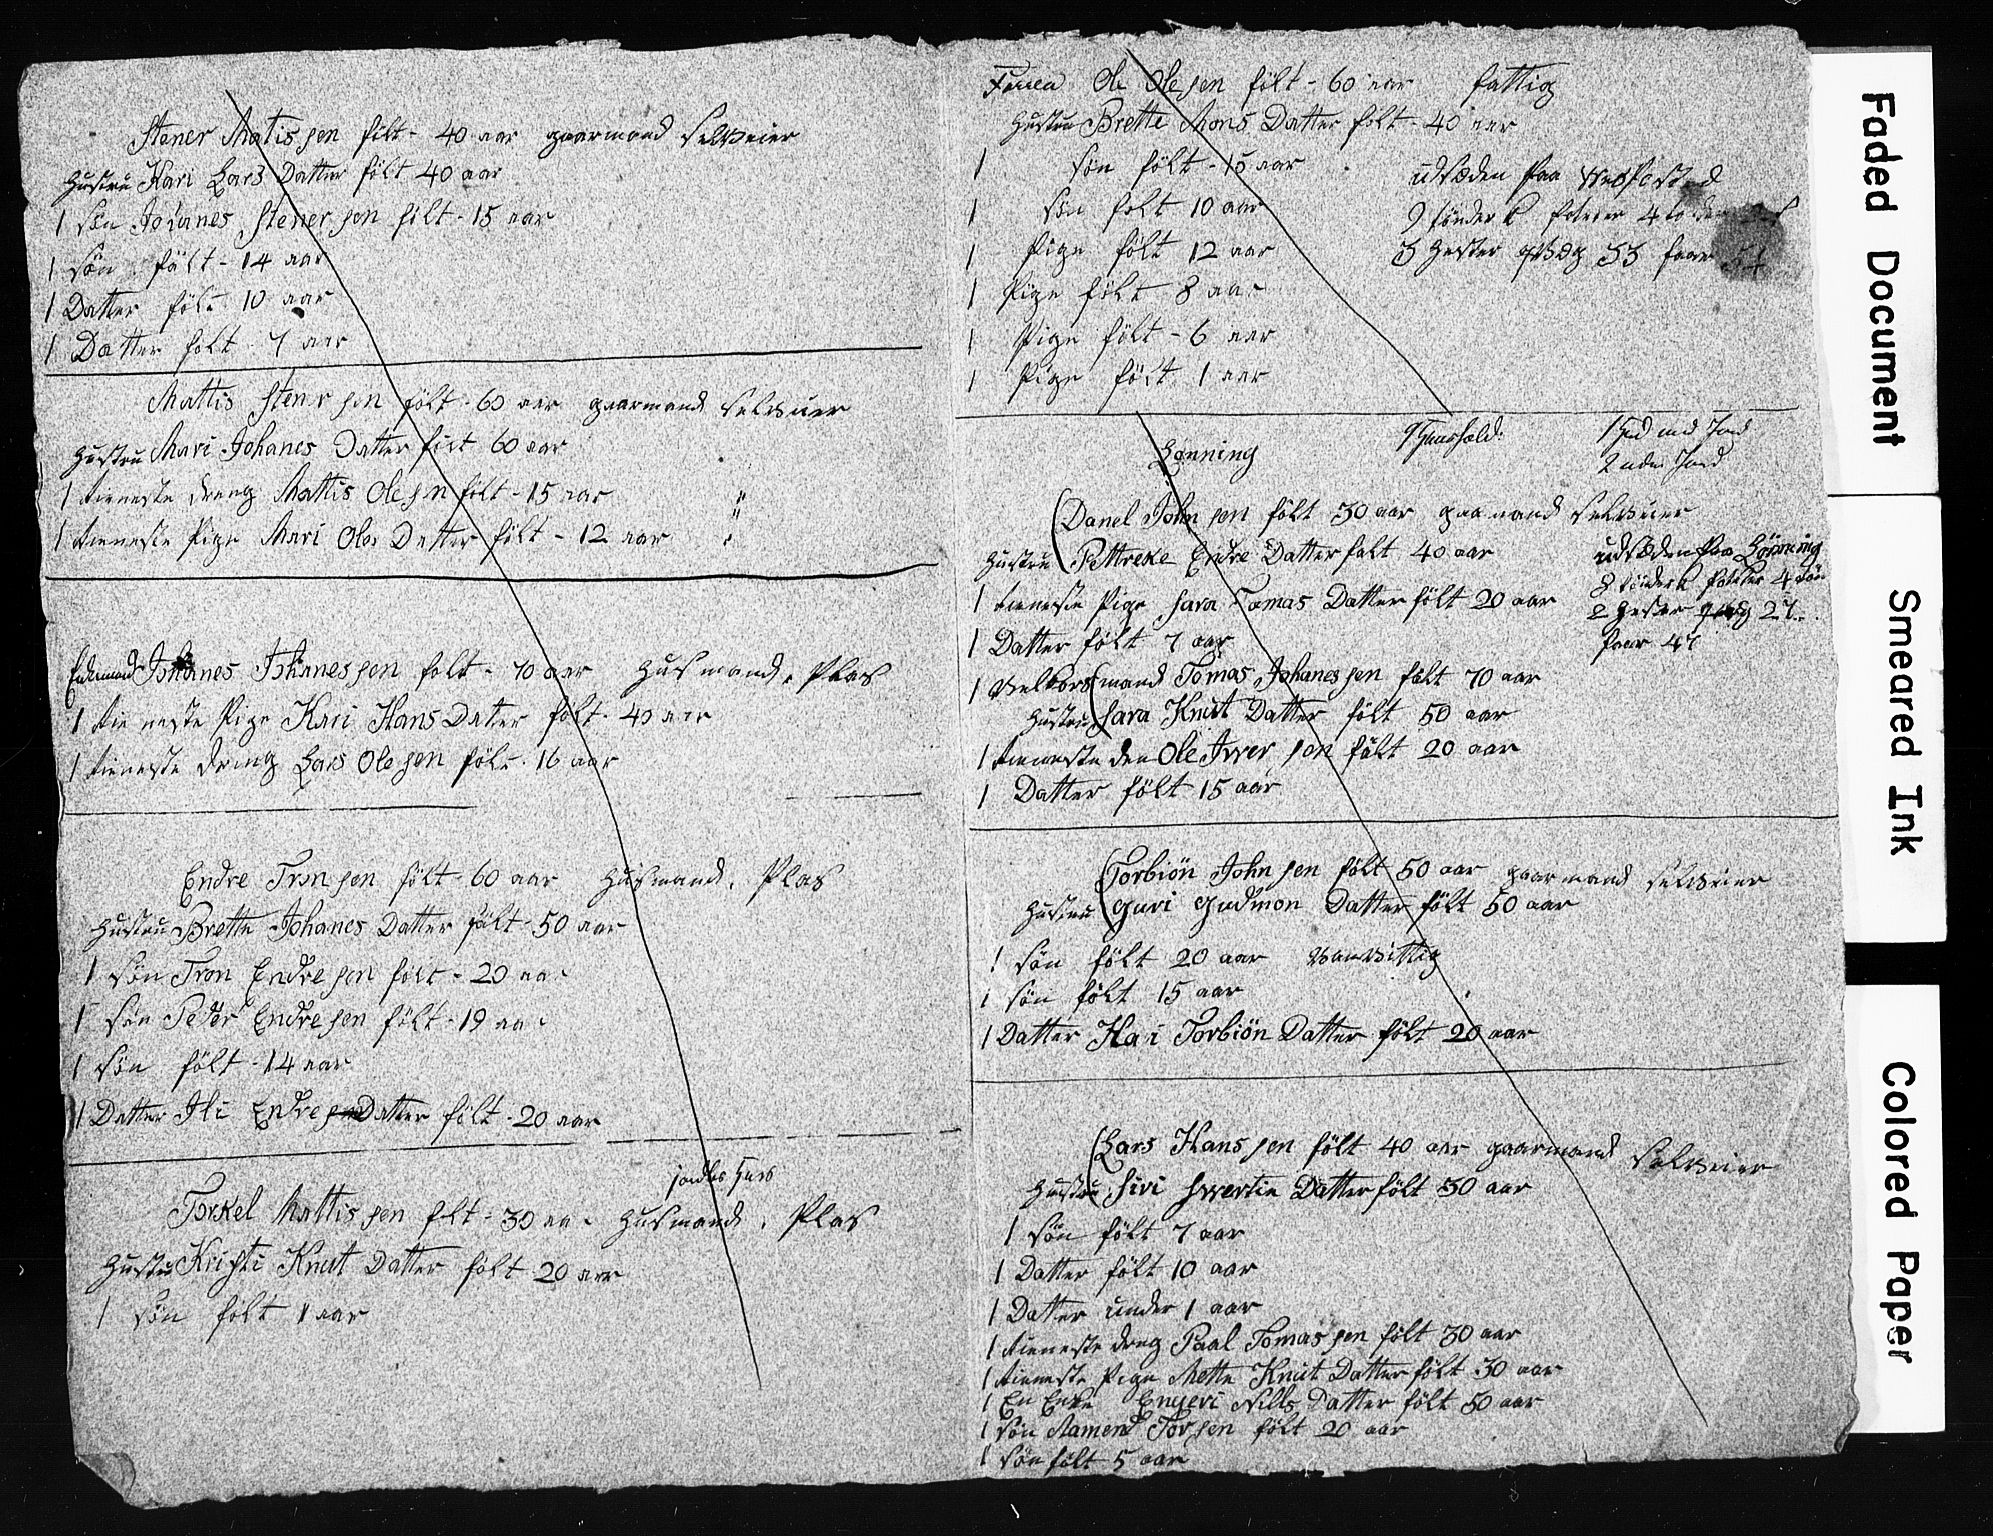 Stener Matissen fölt - 40 aar gaarmand selveier
Hustru Kari Lars Datter fölt 40 aar
1 sön Johanes Stenersen fölt - 15 aar
1 sön fölt - 14 aar
1 Datter fölt 10 aar
1 Datter fölt - 7 aar
Mattis Stenersen fölt - 60 aar gaarmand selveier
Hustru Mari Johanes Datter fölt 60 aar
1 tieneste dreng Mattis Olesen fölt - 15 aar
1 tieneste Pige Mari Oles Datter fölt - 12 aar
Enkemand Johanes Johanessen folt - 70 aar Husmand. Plas
1 tieneste Pige Kari Hans Datter fölt - 40 aar
1 tieneste dreng Lars Olesen fölt - 16 aar
Endre Tronsen fölt - 60 aar Husmand. Plas
Hustru Brette Johanes Datter fölt - 50 aar
1 sön Tron Endresen fölt - 20 aar
1 sön Peder Endresen fölt - 19 aar
1 sön fölt - 14 aar
1 Datter Ili Endre Datter fölt - 20 aar
jordløs Huus
Torkel Mattissen fölt - 30 aar Husmand. Plas
Hustru Kristi Knut Datter fölt 20 aar
1 sön fölt 1 aar
Ole Olesen fölt - 60 aar fattig
Hustru Brette Mons Datter folt - 40 aar
1 sön fölt - 15 aar
1 sön folt 10 aar
1 Pige fölt 12 aar
1 Pige fölt 8 aar
1 Pige fölt - 6 aar
1 Pige fölt 1 aar
udsæden paa
9 tönder poteter 4 tönder
5 Hester qvæg 33 faar 54
Lønning
9 Huushold.
1 Hd med Jord
2 uden Jord
Danel Johnsen fölt 30 aar gaarmand selveier
Hustru Pettreke Endre Datter folt 40 aar
1 tieneste Pige Sara Tomas Datter fölt 20 aar
1 Datter fölt 7 aar
1 Velkorsmand Tomas Johanessen fölt 70 aar
Hustru Sara Knut Datter fölt 50 aar
1 tieneste den Ole Iversen fölt 20 aar
1 Datter fölt 15 aar
udsæden paa Lönning
8 tönder poteter 4 tön
2 Hester qvæg 27
faar 47
Torbiön Johnsen fölt 50 aar gaarmand selveier
Hustru Guri Gudmon Datter fölt 50 aar
1 sön fölt 20 aar vanvittig
1 sön fölt 15 aar
1 Datter Kari Torbiön Datter fölt 20 aar
Lars Hanssen fölt 40 aar gaarmand selveier
Hustru Siri Swertin Datter fölt 30 aar
1 sön fölt 7 aar
1 Datter fölt 10 aar
1 Datter under 1 aar
1 tieneste dreng Paal Tomassen fölt 30 aar
1 tieneste Pige Mette Knut Datter fölt 30 aar
1 En Enke Engeri Nills Datter fölt 50 aar
1 sön Aamend Torsen fölt 20 aar
1 sön fölt 5 aar
Faded Document
Smeared Ink
Colored Paper